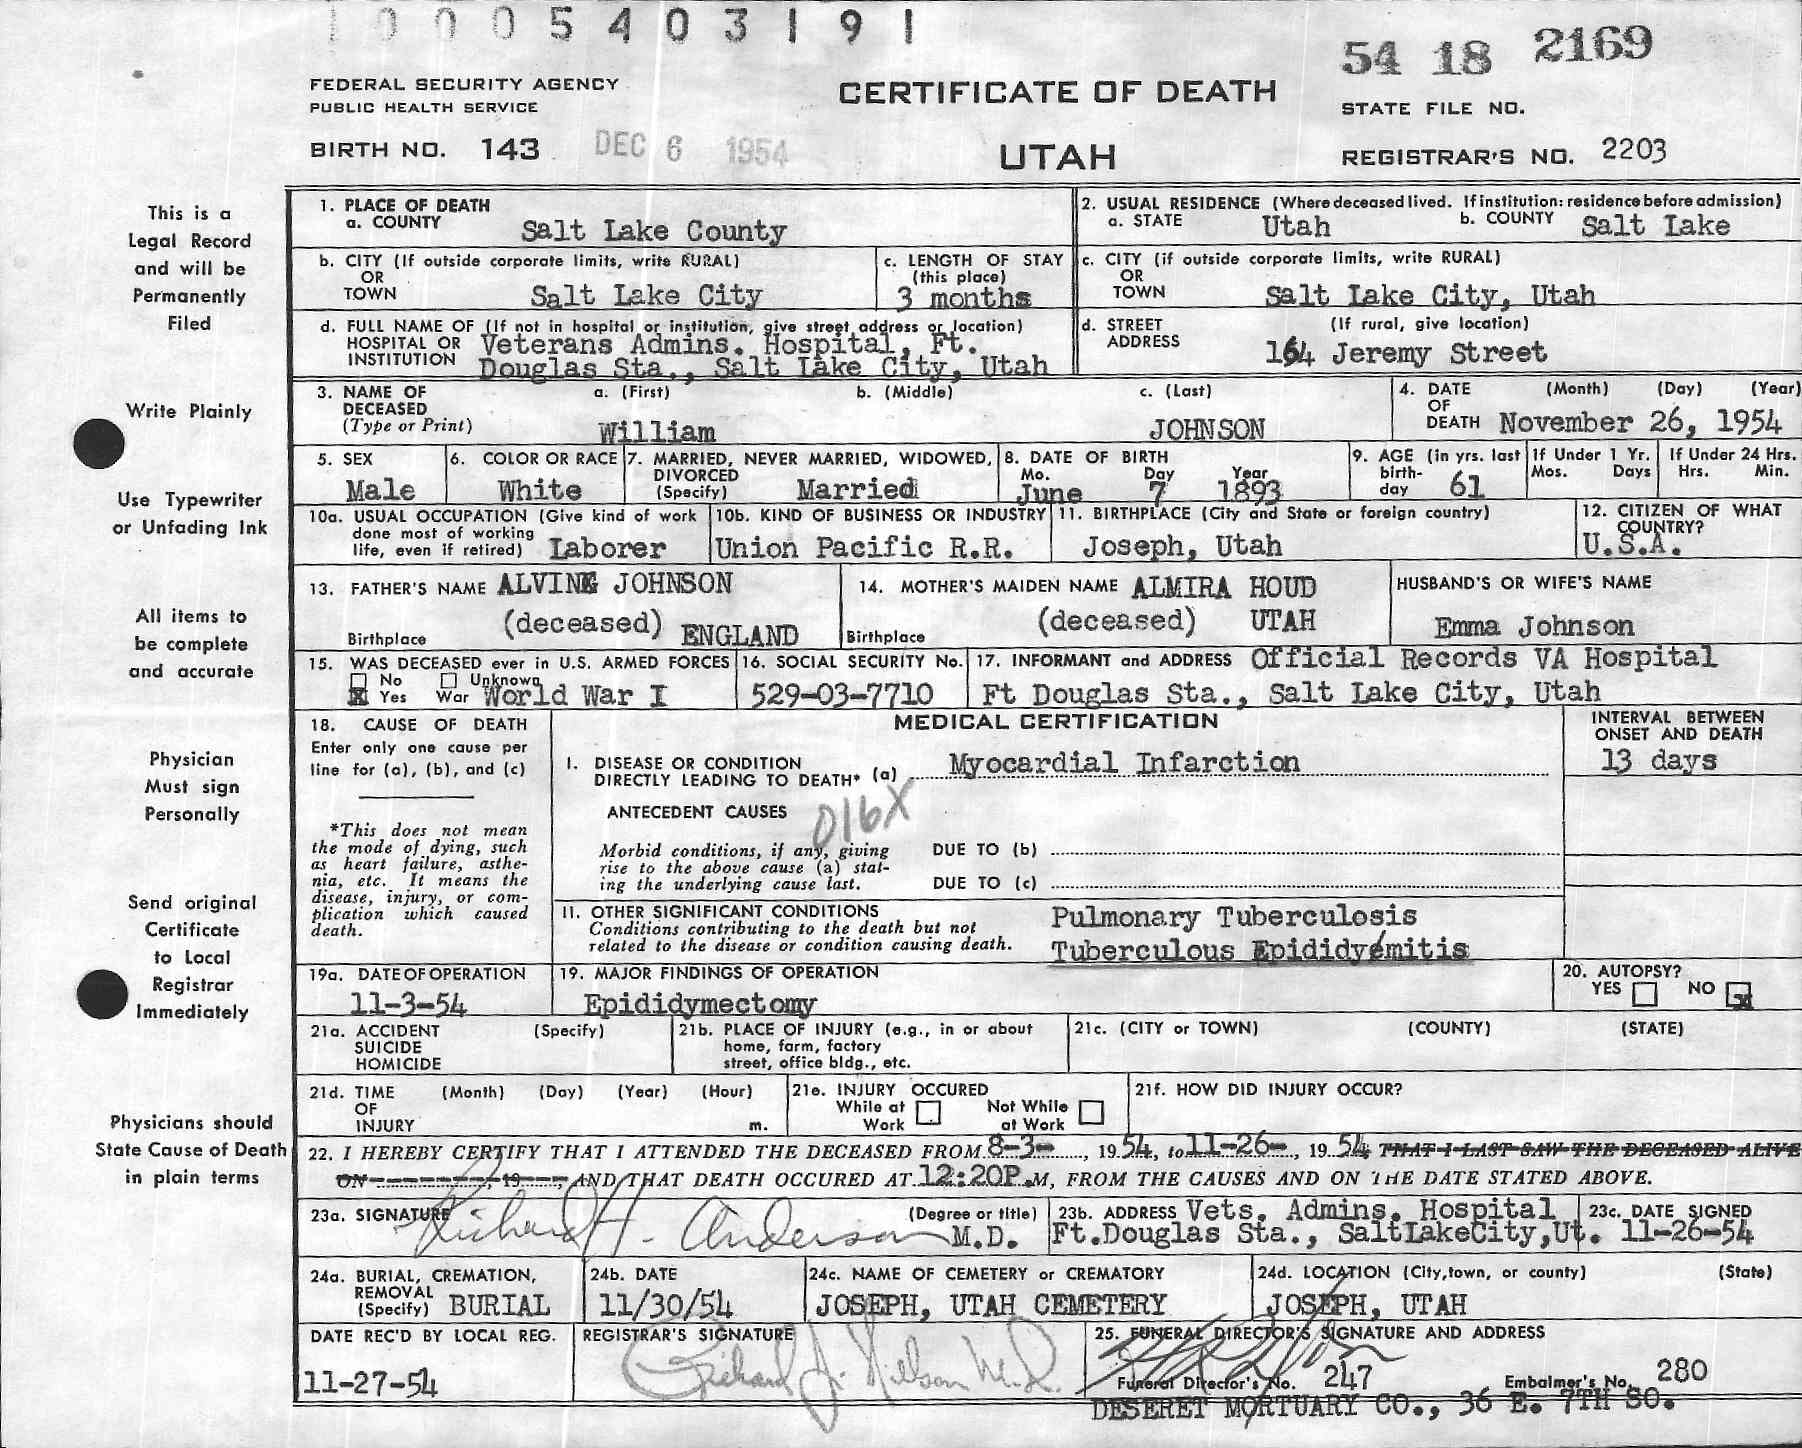 10005403191
54 18 2169
FEDERAL SECURITY AGENCY
PUBLIC HEALTH SERVICE
CERTIFICATE OF DEATH
STATE FILE NO.
BIRTH NO. 143 DEC 6 1954
UTAH
REGISTRAR'S NO. 2203
This is a
Legal Record
and will be
Permanently
Filed
Write Plainly
Use Typewriter
or Unfading Ink
All items to
be complete
and accurate
Physician
Must sign
Personally
Send original
Certificate
to Local
Registrar
Immediately
Physicians should
State Cause of Death
in plain terms
1. PLACE OF DEATH
a. COUNTY Salt Lake County
2. USUAL RESIDENCE (Where deceased lived. If institution: residence before admission)
a. STATE Utah b. COUNTY Salt Lake
b. CITY (If outside corporate limits, write RURAL)
OR
TOWN Salt Lake City
c. LENGTH OF STAY
(this place)
3 months
c. CITY (if outside corporate limits, write RURAL)
OR
TOWN Salt Lake City, Utah
d. FULL NAME OF (If not in hospital or institution, give street address or location)
HOSPITAL OR Veterans Admins. Hospital, Ft.
INSTITUTION Douglas Sta., Salt Lake City, Utah
d. STREET (If rural, give location)
ADDRESS
164 Jeremy Street
3. NAME OF a. (First) b. (Middle) c. (Last)
DECEASED
(Type or Print) William JOHNSON
4. DATE (Month) (Day) (Year)
OF
DEATH November 26, 1954
5. SEX
Male
6. COLOR OR RACE
White
7. MARRIED, NEVER MARRIED, WIDOWED,
DIVORCED
(Specify) Married
8. DATE OF BIRTH
Mo. Day Year
June 7 1893
9. AGE (in yrs. last
birth-
day 61
If Under 1 Yr.
Mos. Days
If Under 24 Hrs.
Hrs. Min.
10a. USUAL OCCUPATION (Give kind of work
done most of working
life, even if retired) Laborer
10b. KIND OF BUSINESS OR INDUSTRY
Union Pacific R.R.
11. BIRTHPLACE (City and State or foreign country)
Joseph, Utah
12. CITIZEN OF WHAT
COUNTRY?
U.S.A.
13. FATHER'S NAME ALVING JOHNSON
(deceased)
Birthplace ENGLAND
14. MOTHER'S MAIDEN NAME ALMIRA HOUD
(deceased) UTAH
Birthplace
HUSBAND'S OR WIFE'S NAME
Emma Johnson
15. WAS DECEASED ever in U.S. ARMED FORCES
No Unknown
Yes War World War I
16. SOCIAL SECURITY No.
529-03-7710
17. INFORMANT and ADDRESS Official Records VA Hospital
Ft Douglas Sta., Salt Lake City, Utah
18. CAUSE OF DEATH
Enter only one cause per
line for (a), (b), and (c)
*This does not mean
the mode of dying, such
as heart failure, asthe-
nia, etc. It means the
disease, injury, or com-
plication which caused
death.
MEDICAL CERTIFICATION
INTERVAL BETWEEN
ONSET AND DEATH
I. DISEASE OR CONDITION
DIRECTLY LEADING TO DEATH* (a) Myocardial Infarction
13 days
ANTECEDENT CAUSES
016X
Morbid conditions, if any, giving
rise to the above cause (a) stat-
ing the underlying cause last.
DUE TO (b)
DUE TO (c)
II. OTHER SIGNIFICANT CONDITIONS
Conditions contributing to the death but not
related to the disease or condition causing death.
Pulmonary Tuberculosis
Tuberculous Epididyemitis
19a. DATE OF OPERATION
11-3-54
19. MAJOR FINDINGS OF OPERATION
Epididymectomy
20. AUTOPSY?
YES NO X
21a. ACCIDENT (Specify)
SUICIDE
HOMICIDE
21b. PLACE OF INJURY (e.g., in or about
home, farm, factory
street, office bldg., etc.
21c. (CITY or TOWN) (COUNTY) (STATE)
21d. TIME (Month) (Day) (Year) (Hour)
OF
INJURY m.
21e. INJURY OCCURED
While at Not While
Work at Work
21f. HOW DID INJURY OCCUR?
22. I HEREBY CERTIFY THAT I ATTENDED THE DECEASED FROM 8-3-, 19 54, to 11-26-, 19 54; THAT I LAST SAW THE DECEASED ALIVE
ON , 19 , AND THAT DEATH OCCURED AT 12:20P.M, FROM THE CAUSES AND ON THE DATE STATED ABOVE.
23a. SIGNATURE (Degree or title)
Richard H. Anderson M.D.
23b. ADDRESS Vets. Admins. Hospital
Ft.Douglas Sta., SaltLakeCity,Ut.
23c. DATE SIGNED
11-26-54
24a. BURIAL, CREMATION,
REMOVAL
(Specify) BURIAL
24b. DATE
11/30/54
24c. NAME OF CEMETERY or CREMATORY
JOSEPH, UTAH CEMETERY
24d. LOCATION (City, town, or county) (State)
JOSEPH, UTAH
DATE REC'D BY LOCAL REG.
11-27-54
REGISTRAR'S SIGNATURE
Richard J. Nielson M.D.
25. FUNERAL DIRECTOR'S SIGNATURE AND ADDRESS
Funeral Director's No. 247 Embalmer's No. 280
DESERET MORTUARY CO., 36 E. 7TH SO.